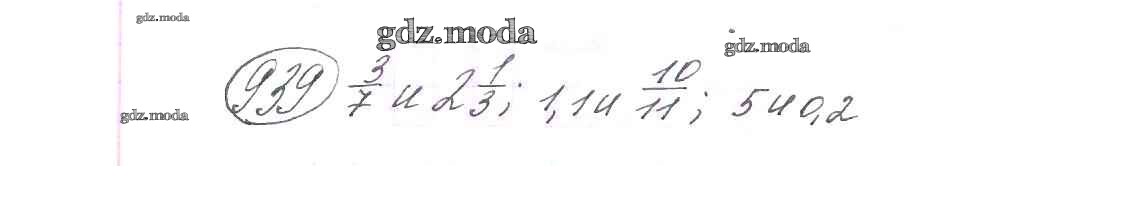 gdz.moda
gdz.moda
gdz.moda
939 3/7 и 2 1/3; 1,1 и 10/11; 5 и 0,2
gdz.moda